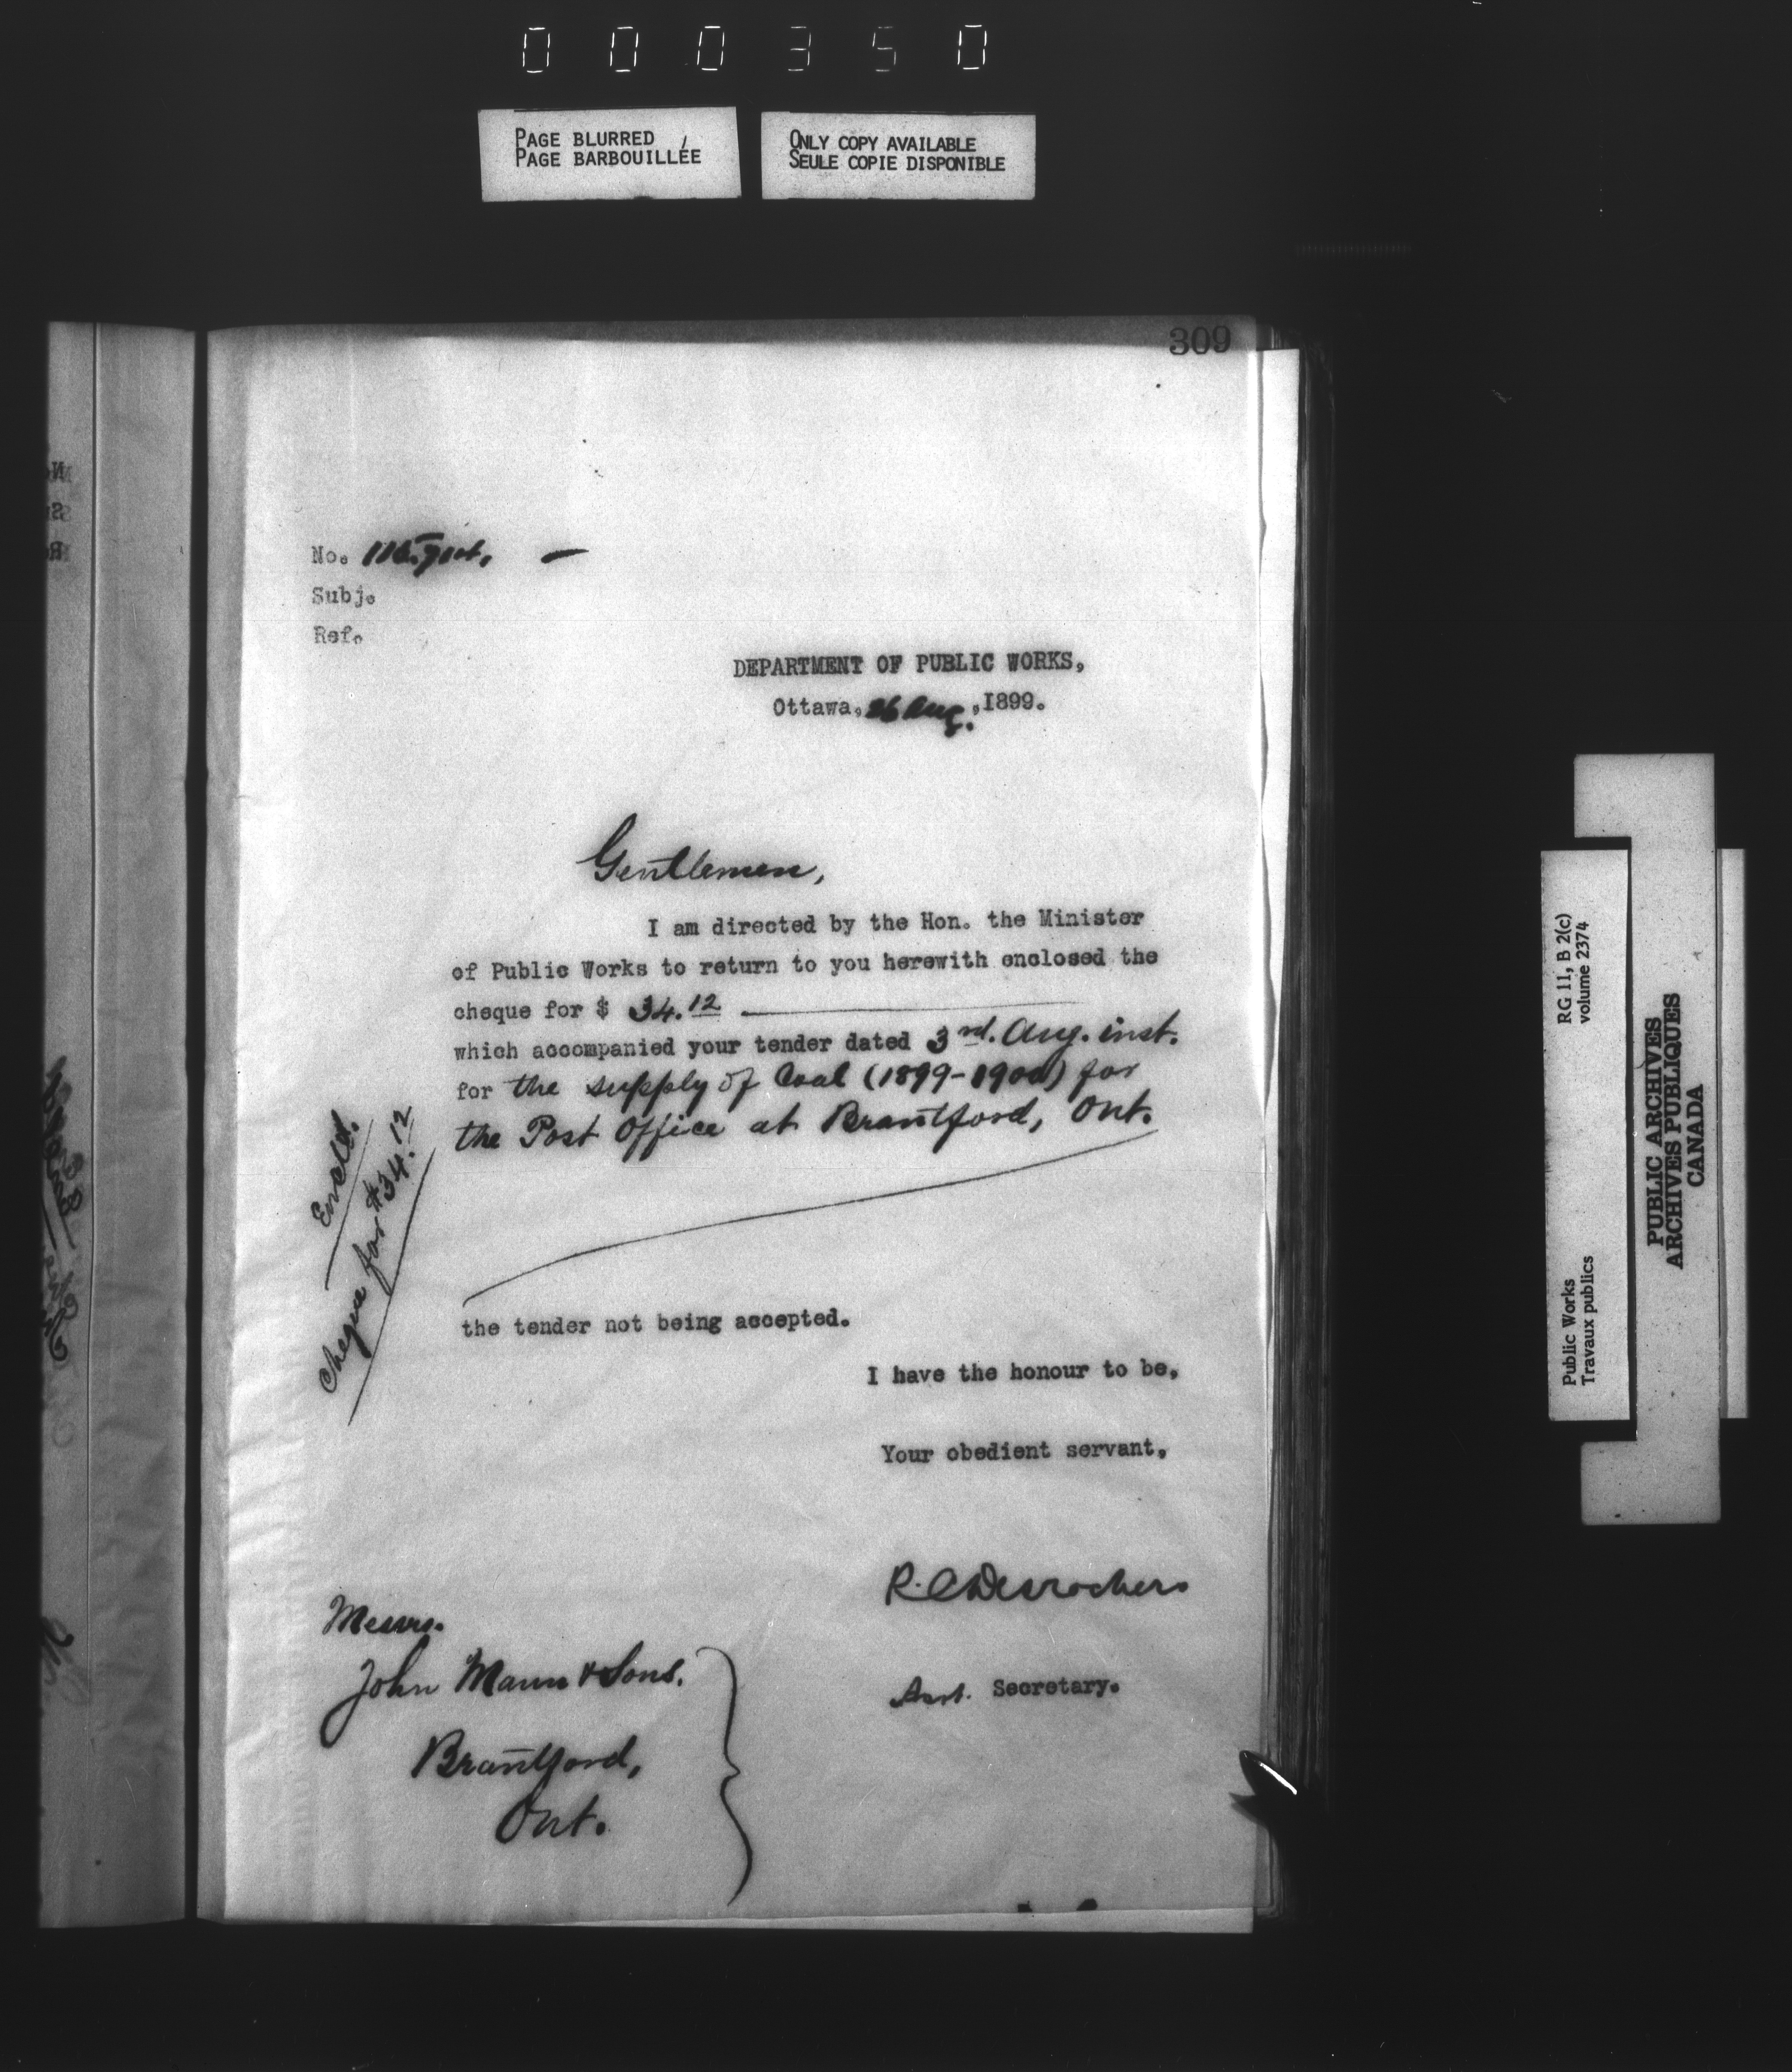 000350
PAGE BLURRED
PAGE BARBOUILLÉE
ONLY COPY AVAILABLE
SEULE COPIE DISPONIBLE
309
No.
Subj.
Ref.
DEPARTMENT OF PUBLIC WORKS,
Ottawa, 26 Aug. ,1899.
Gentlemen,
I am directed by the Hon. the Minister
of Public Works to return to you herewith enclosed the
cheque for $ 34.12
which accompanied your tender dated 3rd. Aug. inst.
for the supply of Coal (1899-1900) for
the Post Office at Brantford, Ont.
Encld.
Cheque for $34.12
the tender not being accepted.
I have the honour to be,
Your obedient servant,
R.C Desrochers
Asst. Secretary.
Messrs.
John Mann & Sons.
Brantford,
Ont.
RG 11, B 2(c)
volume 2374
Public Works
Travaux publics
PUBLIC ARCHIVES
ARCHIVES PUBLIQUES
CANADA